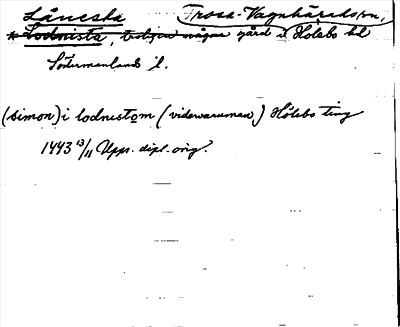 Låneska Trosa-Vagnhärads sn,
* Lodnista, troligen någon gård i Hölebo hd
Södermanlands l.
(Simon) i lodnistom (viderwaruman) Hölebo ting
1443 13/11 Upps. dipl. orig.